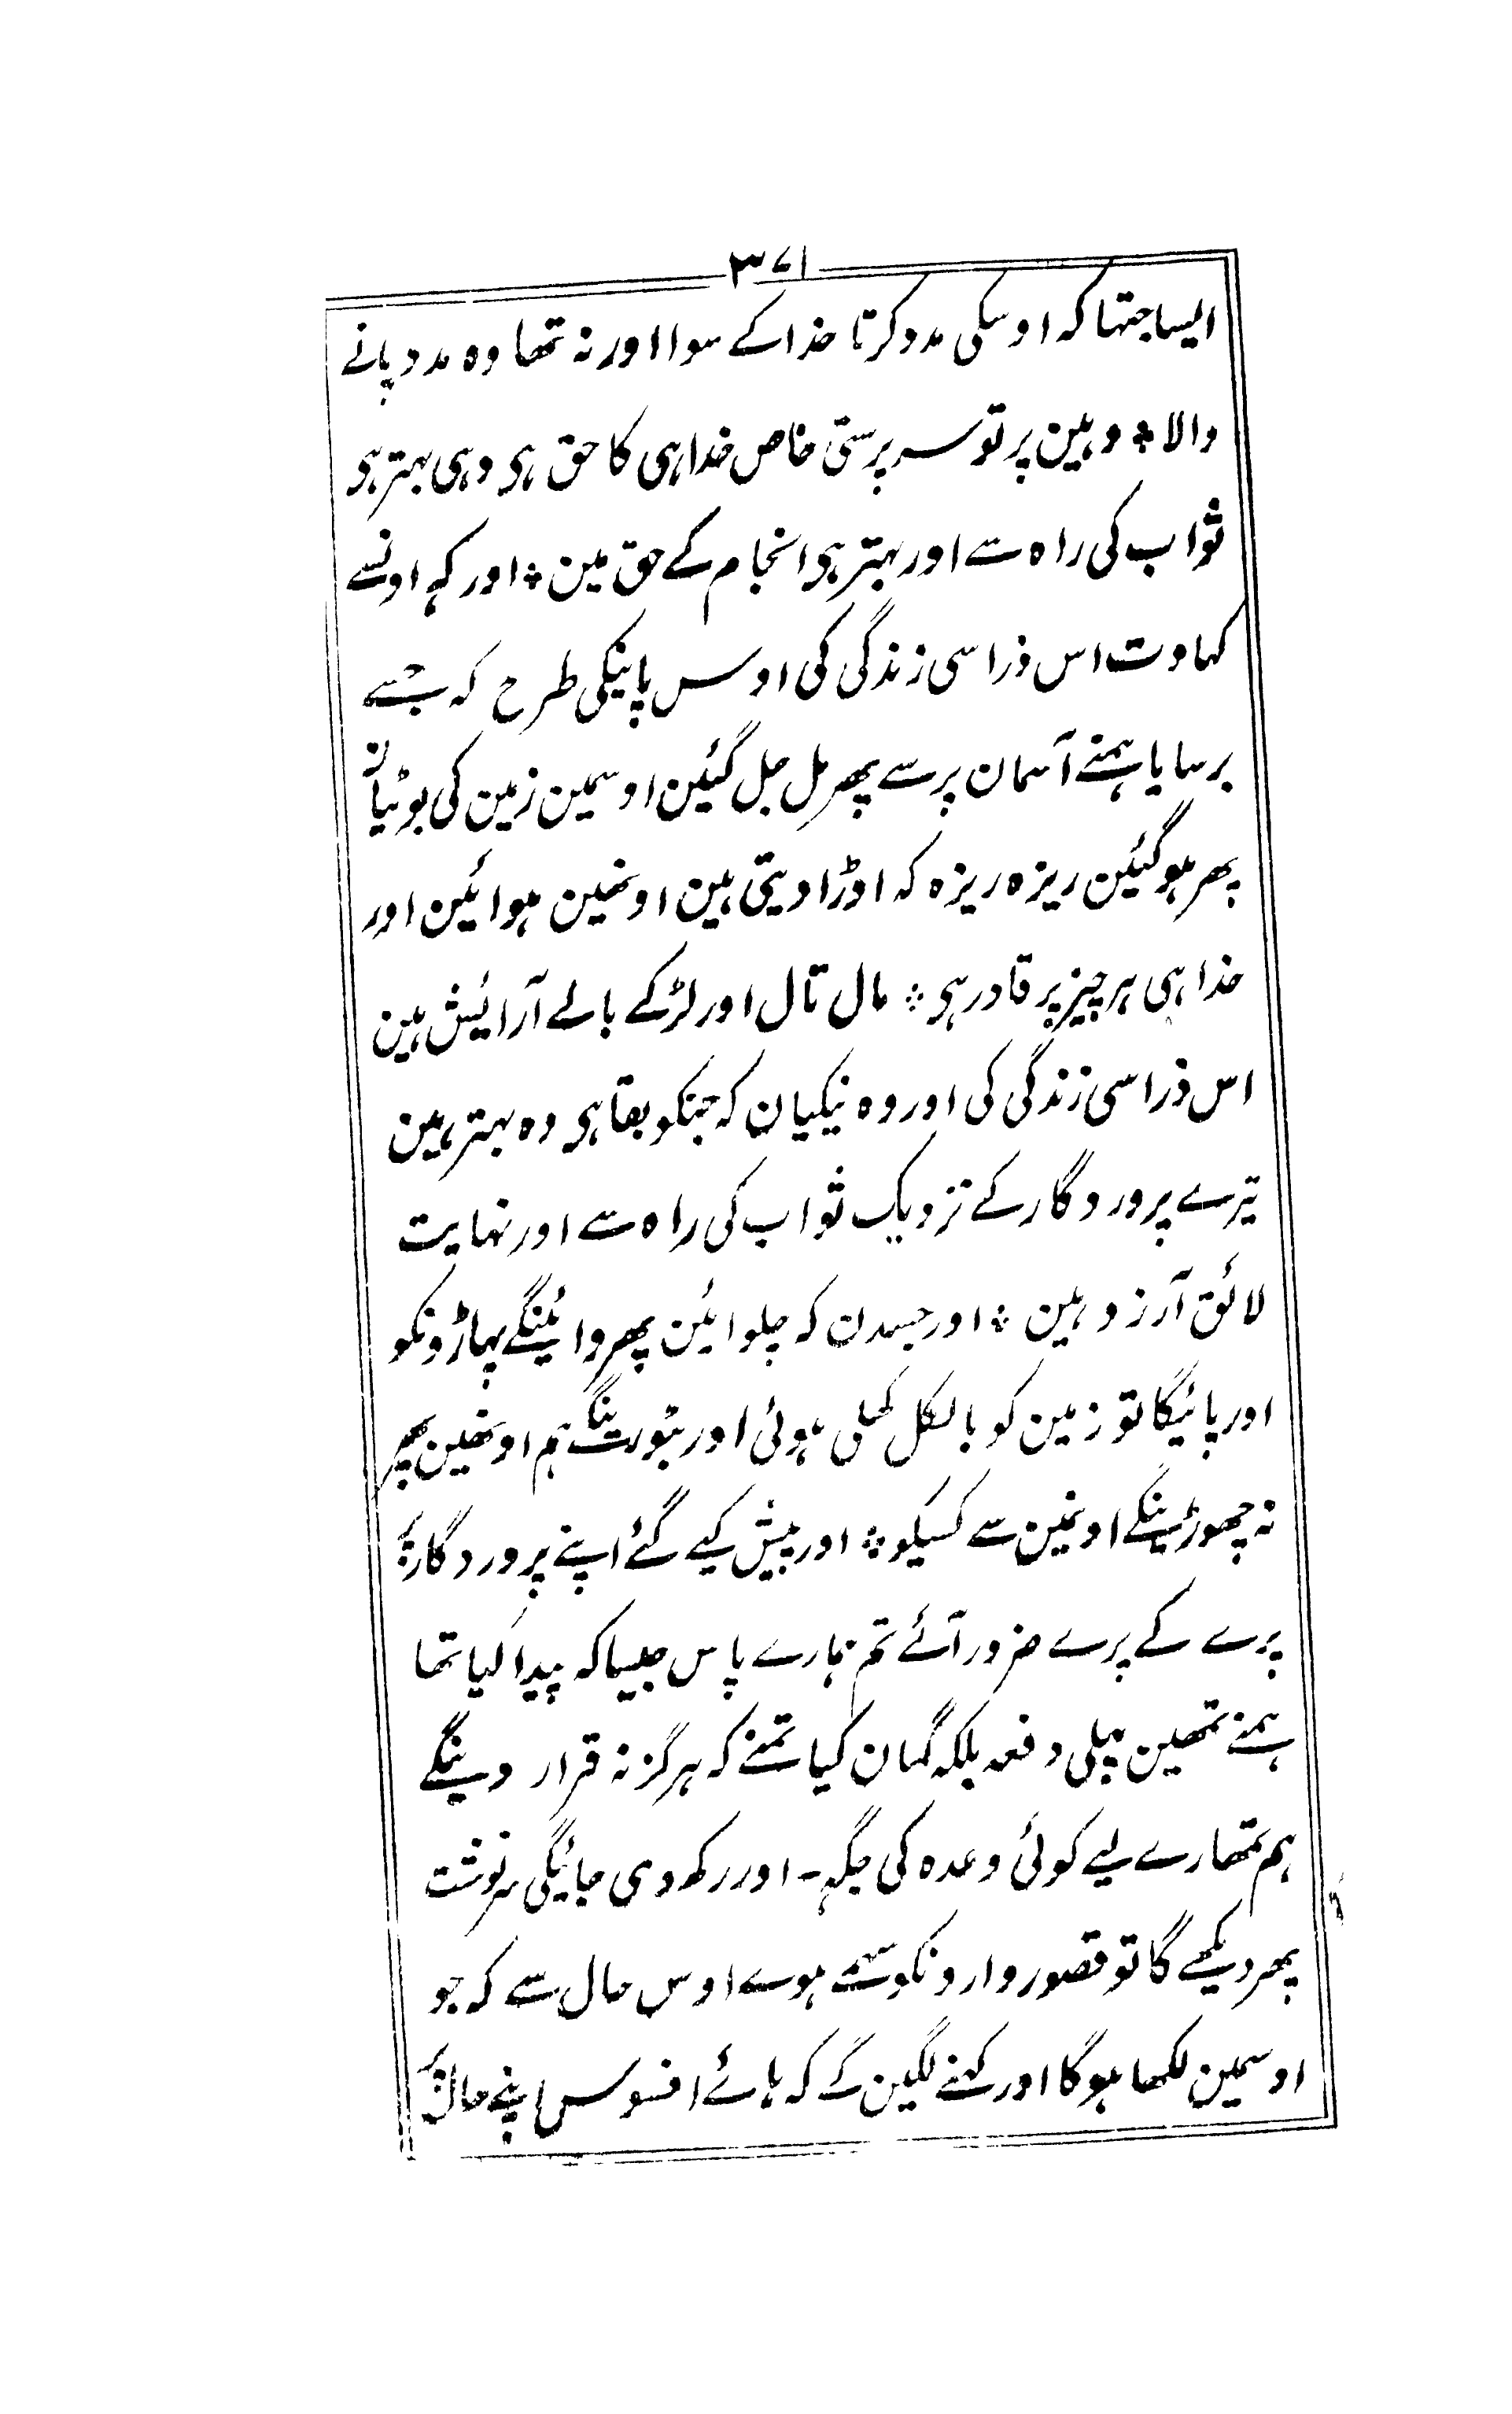 ۳۷۱
ایسا جتھا کہ اوسکی مدد کرتا خدا کے سوا اور نہ تھا وہ مدد پانے
والا ؞ وہین پر تو سرپرستی خاص خدا ہی کا حق ہی وہی بہتر ہی
ثواب کی راہ سے اور بہتر ہی انجام کے حق مین ؞ اور کہہ اونسے
کہاوت اس ذرا سی زندگی کی اوس پانیکی طرح کہ جسے
برسایا ہمنے آسمان پر سے پھر مل جل گئین اوسمین زمین کی بوٹیان
پھر ہو گئین ریزہ ریزہ کہ اوڑا دیتی ہین اونھین ہوائین اور
خدا ہی ہر چیز پر قادر ہی ؞ مال تال اور لڑکے بالے آرائیش ہین
اس ذرا سی زندگی کی اور وہ نیکیان کہ جنکو بقا ہی وہ بہتر ہین
تیرے پروردگار کے نزدیک ثواب کی راہ سے اور نہایت
لائق آرزو ہین ؞ اور جسدن کہ چلوائین پھروائینگے پہاڑونکو
اور پائیگا تو زمین کو بالکل کھلی ہوئی اور بٹورینگے ہم اونھین پھر
نہ چھوڑینگے اونمین سے کسیکو ؞ اور پیش کیے گئے اپنے پروردگار پر
پرے کے پرے ضرور آئے تم ہمارے پاس جیسا کہ پیدا کیا تھا
ہمنے تمھین پہلی دفعہ بلکہ گمان کیا تمنے کہ ہرگز نہ قرار دینگے
ہم تمھارے لیے کوئی وعدہ کی جگہ۔ اور رکھدی جائیگی سرنوشت
پھر دیکھے گا تو قصوروارونکو سہمے ہوے اوس حال سے کہ جو
اوسمین لکھا ہوگا اور کہنے لگین گے کہ ہائے افسوس اپنے حال پر